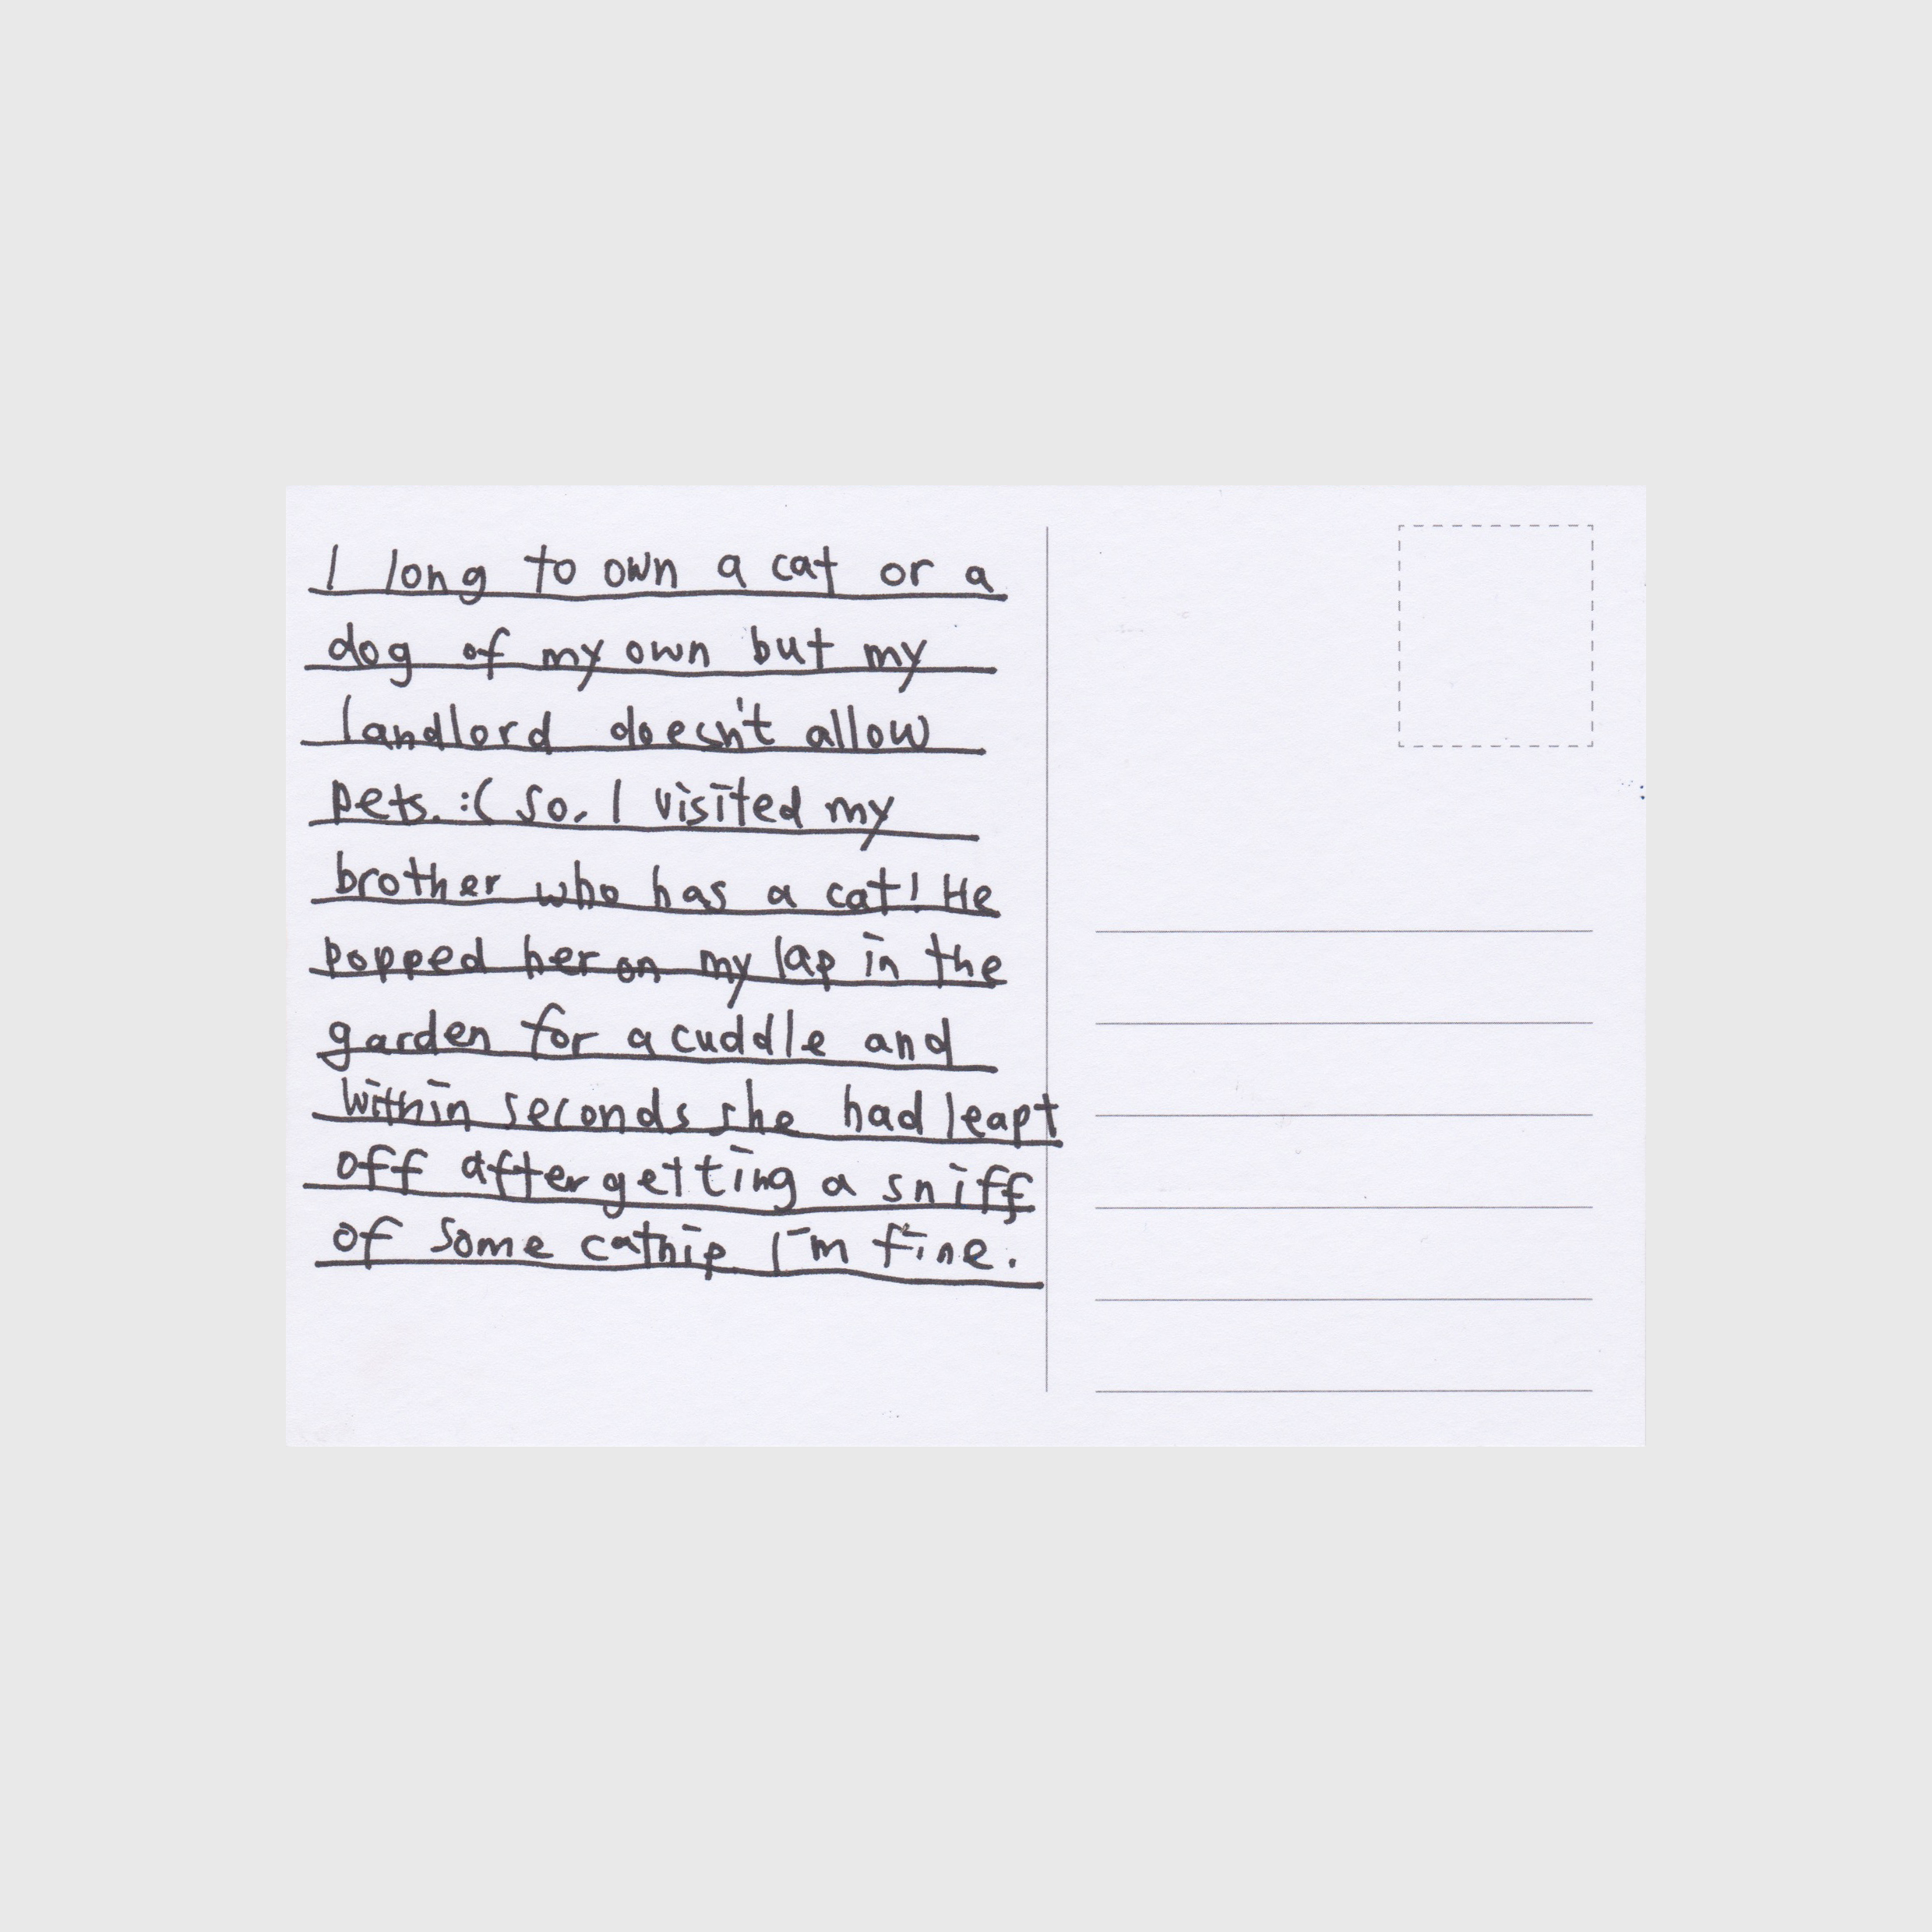 I long to own a cat or a
dog of my own but my
landlord doesn't allow
pets. :( So, I visited my
brother who has a cat! He
popped her on my lap in the
garden for a cuddle and
within seconds she had leapt
off after getting a sniff
of some catnip I'm fine.